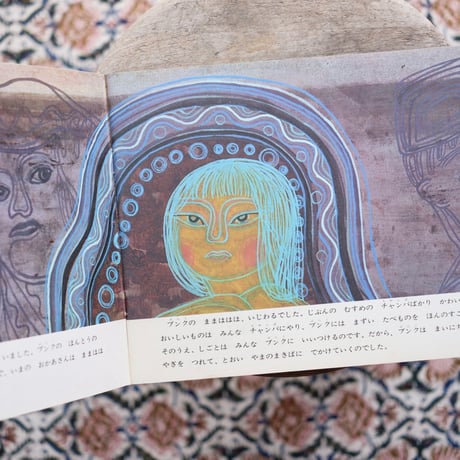 いました。プンクの ほんとうの
で、いまの おかあさんは ままは
プンクの ままははは、いじわるでした。じぶんの むすめの チャンパばかり かわい
おいしいものは みんな チャンパにやり、プンクには まずい たべものを ほんのすこ
そのうえ、しごとは みんな プンクに いいつけるのです。だから、プンクは まいに
やぎを つれて、とおい やまのまきばに でかけていくのでした。